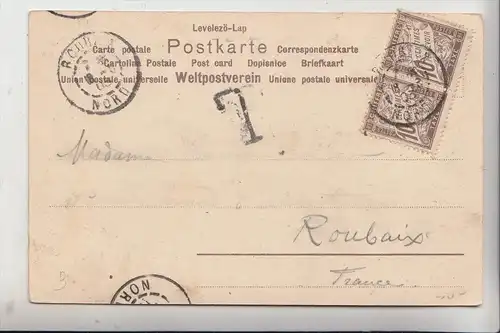 Levelezö-Lap
Carte postale Postkarte Correspondenzkarte
Cartolina Postale Post card Dopisnice Briefkaart
Union postale universelle Weltpostverein Unione postale universale
NORD
T
10
10
Madame
Roubaix
France
NOR